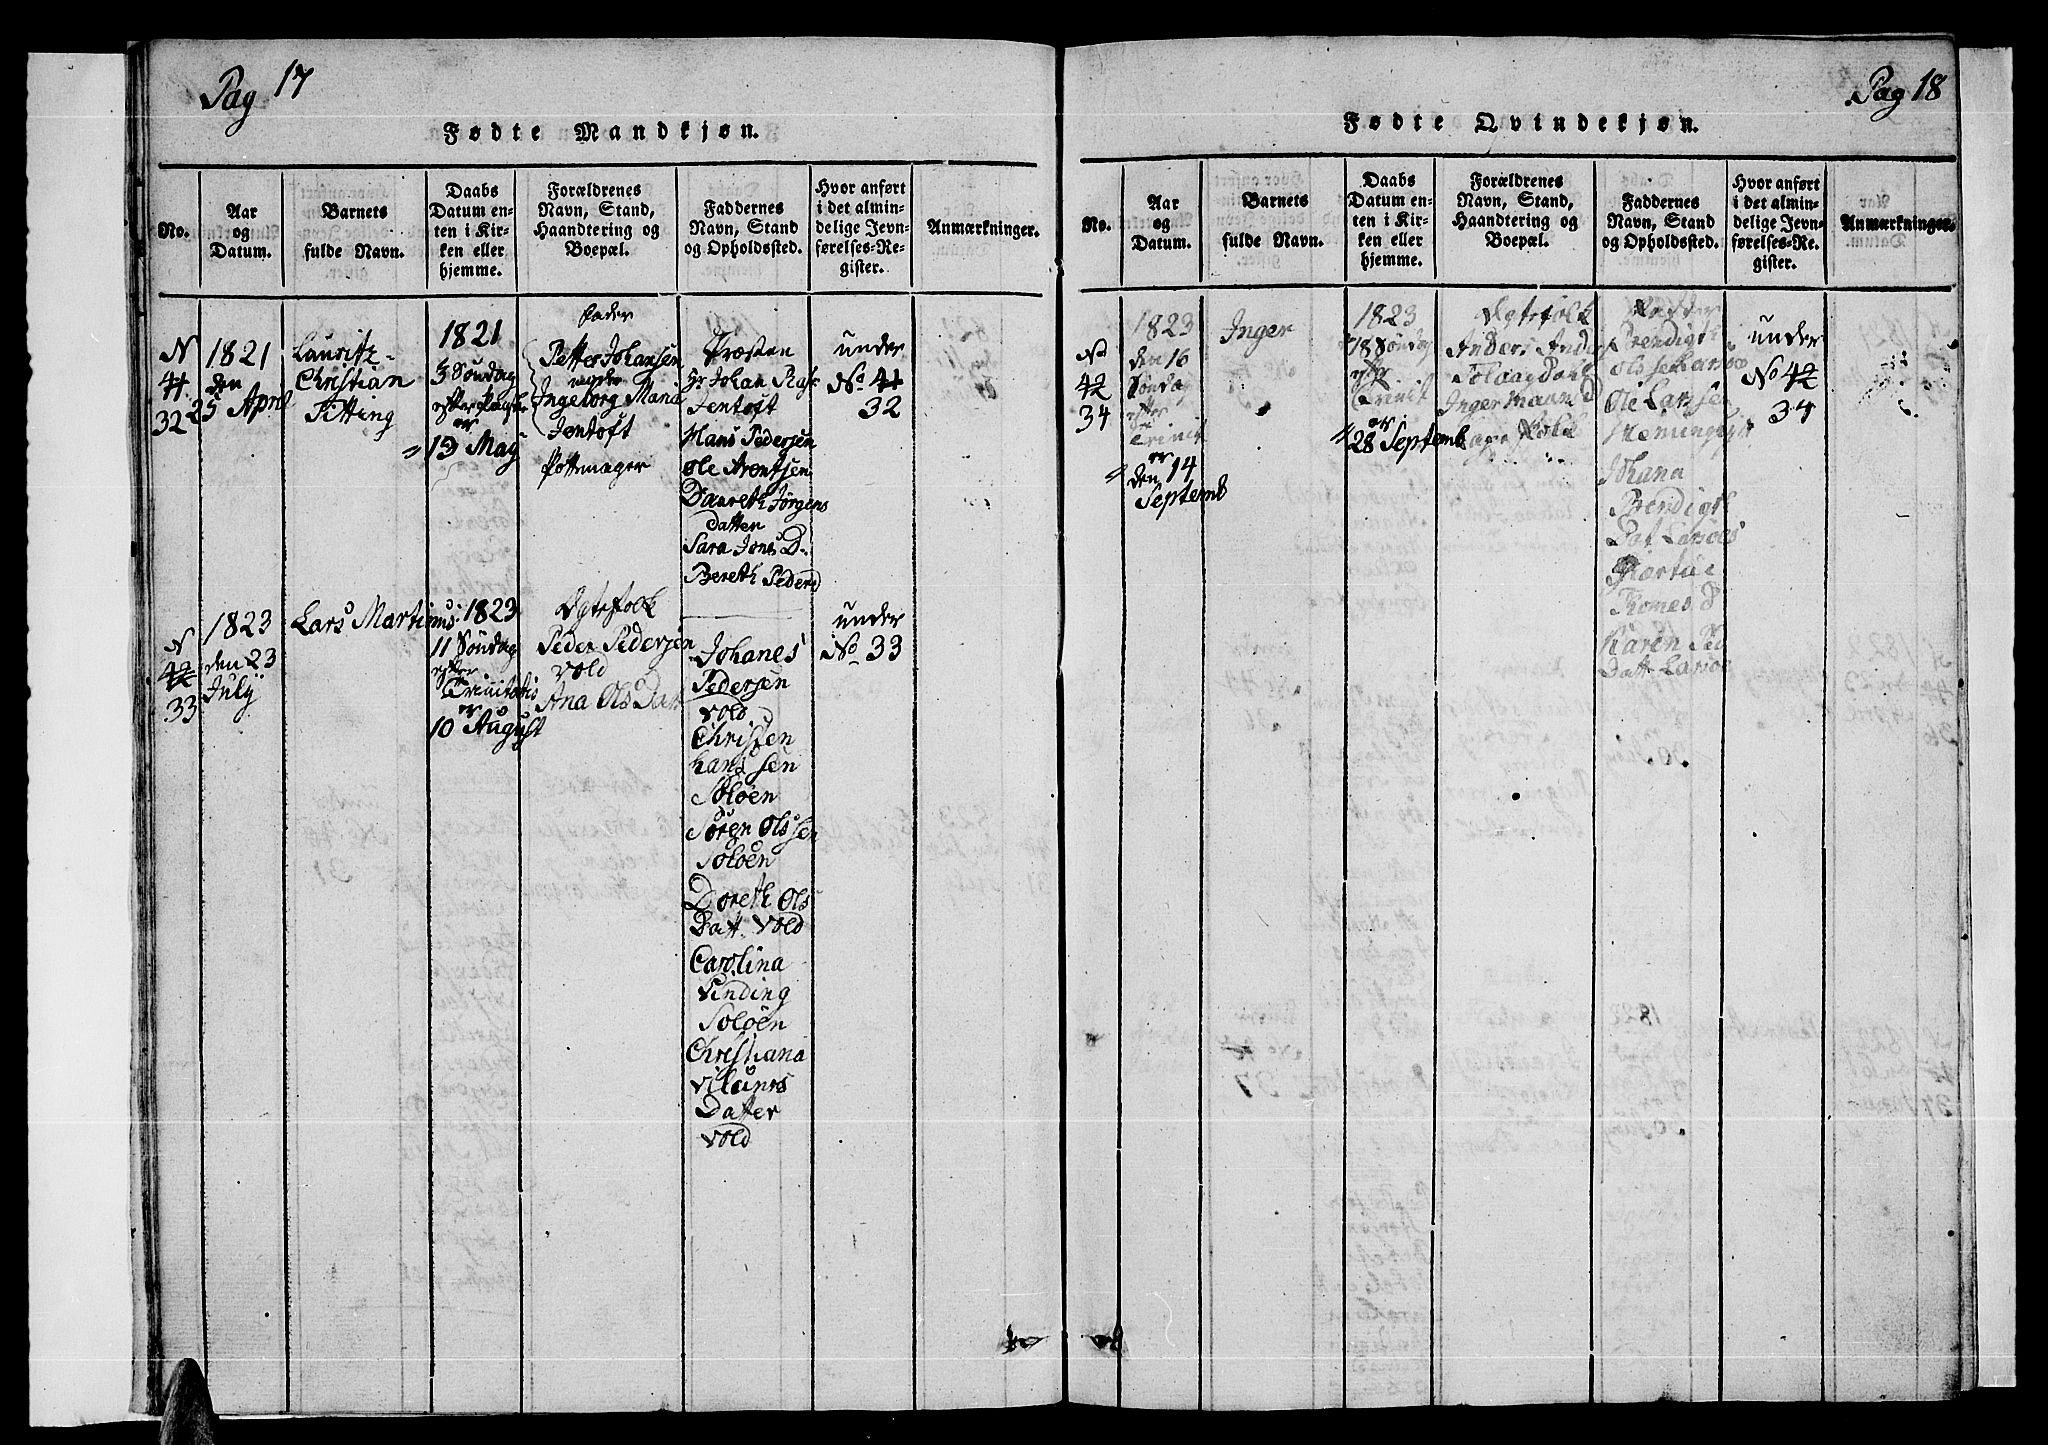 Pag 17
Fødte Mandkjøn.
No.
Aar
og
Datum.
Barnets
fulde Navn.
Daabs
Datum en-
ten i Kir-
ken eller
hjemme.
Forældrenes
Navn, Stand,
Haandtering og
Boepæl.
Faddernes
Navn, Stand
og Opholdssted.
Hvor anført
i det almin-
delige Jevn-
førelses-Re-
gister.
Anmærkninger.
N
41
32
1821
den
25 April
Lauritz
Christian
Titting
1821
3 Søndag
efter Paaske
er
13 May
Fader
Petter Johansen
moder
Ingeborg Maria
Jentoft
Pottmager
Præsten
Hr Johan
Jentoft
Hans Pedersen
Ole Arentsen
Daareth Jørgens
Datter
Sara Jons D.
Bereth Peders D
under
No 41
32
N
42
33
1823
den 23
July
Lars Martinus
1823
11 Søndag
efter
Trinitatis
er
10 August
Ægtefolk
Peder Pedersen
Vold
Ana Ols Dat
Johanes
Pedersen
Vold
Christen
Hanssen
Soløen
Søren Olssen
Soløen
Doreth Ols
Datt. Vold
Carolina
Vinding
Soløen
Christiana
Datter
Vold
under
No 33
Pag 18
Fødte Qvindekjøn.
No.
Aar
og
Datum.
Barnets
fulde Navn.
Daabs
Datum en-
ten i Kir-
ken eller
hjemme.
Forældrenes
Navn, Stand,
Haandtering og
Boepæl.
Faddernes
Navn, Stand
og Opholdssted.
Hvor anført
i det almin-
delige Jevn-
førelses-Re-
gister.
Anmærkninger.
No
42
34
1823
den 16
Søndag
efter
Trinit
er
den 14
Septemb
Inger
1823
18 Søndag
efter
Trinit
er
28 Septemb
Ægtefolk
Anders Anders
Inger
Fadder
Ole Larsen
Johana
Bendigt
Thomes D
Karen Ped
Datt
under
No 42
34